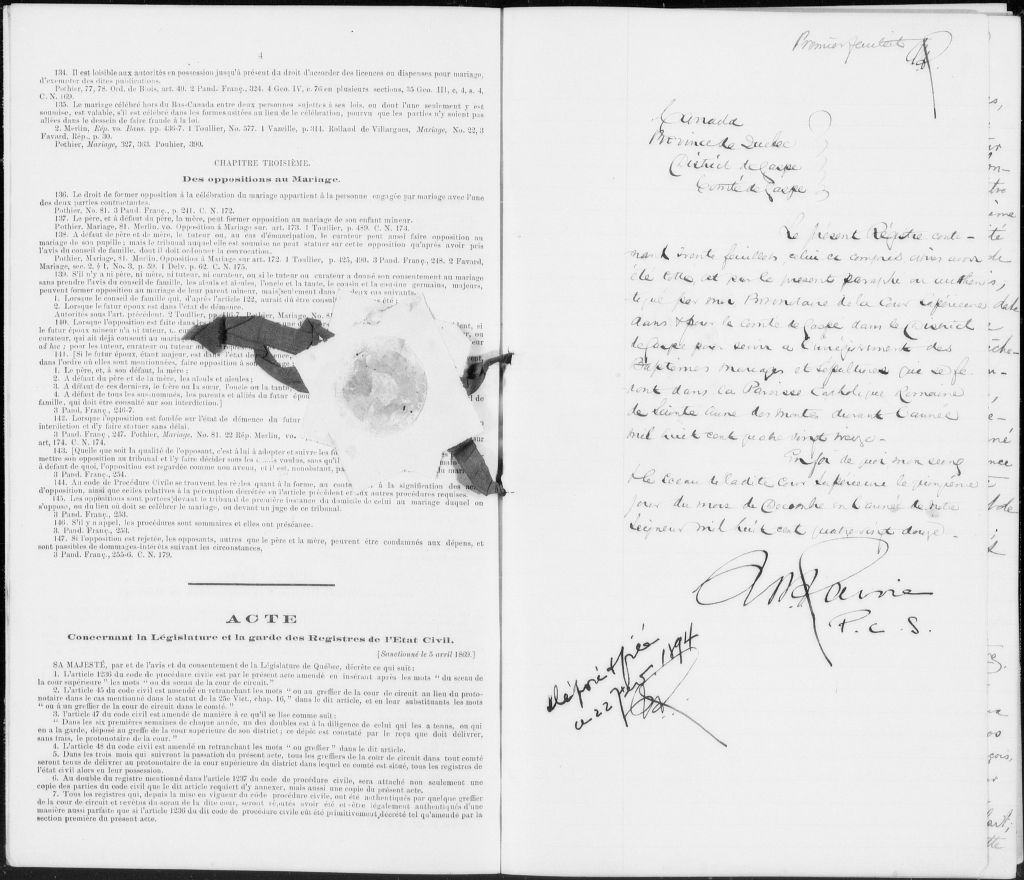 4
134. Il est loisible aux autorités en possession jusqu'à présent du droit d'accorder des licences ou dispenses pour mariage,
d'exempter des dites publications.
Pothier, 77, 78. Ord. de Blois, art. 40. 2 Pand. Franç., 324. 4 Geo. IV, c. 76 en plusieurs sections, 35 Geo. III, c, 4, s. 4,
C. N. 169.
135. Le mariage célébré hors du Bas-Canada entre deux personnes sujettes à ses lois, ou dont l'une seulement y est
soumise, est valable, s'il est célébré dans les formes usitées au lieu de la célébration, pourvu que les parties n'y soient pas
allées dans le dessein de faire fraude à la loi.
2. Merlin, Rép. vo. Bans. pp. 436-7. 1 Toullier, No. 577. 1 Vazille, p. 314. Rolland de Villargues, Mariage, No. 22, 3
Favard, Rép., p. 30.
Pothier, Mariage, 327, 363. Pouhier, 390.
CHAPITRE TROISIÈME.
Des oppositions au Mariage.
136. Le droit de former opposition à la célébration du mariage appartient à la personne engagée par mariage avec l'une
des deux parties contractantes.
Pothier, No. 81. 3 Pand. Franç., p. 241. C. N. 172.
137. Le père, et à défaut du père, la mère, peut former opposition au mariage de son enfant mineur.
Pothier, Mariage, 81. Merlin, vo. Opposition à Mariage sur. art. 173. 1 Toullier, p. 489. C. N. 173.
138. A défaut de père et de mère, le tuteur ou, au cas d'émancipation, le curateur peut aussi faire opposition au
mariage de son pupille ; mais le tribunal auquel elle est soumise ne peut statuer sur cette opposition qu'après avoir pris
l'avis du conseil de famille, dont il doit ordonner la convocation.
Pothier, Mariage, 81. Merlin, Opposition à Mariage sur art. 172. 1 Toullier, p. 425, 490. 3 Pand. Franç., 248. 2 Favard,
Mariage, sec. 2, § 1, No. 3, p. 59. 1 Delv. p. 62. C. N. 175.
139. S'il n'y a ni père, ni mère, ni tuteur, ni curateur, ou si le tuteur ou curateur a donné son consentement au mariage
sans prendre l'avis du conseil de famille, les aïeuls et aïeules, l'oncle et la tante, le cousin et la cousine germains, majeurs,
peuvent former opposition au mariage de leur parent mineur, mais seulement dans les deux cas suivants
1. Lorsque le conseil de famille qui, d'après l'article 122, aurait dû être consulté été ;
2. Lorsque le futur époux est dans l'état de démence.
Autorités sous l'art. précédent. 2 Toullier, p. Mariage, No. 81
140. Lorsque l'opposition est faite dans
le futur époux mineur n'a ni tuteur,
curateur, qui ait déjà consenti au maria
ad hoc ; pour les tuteur, curateur ou tuteur
141. [Si le futur époux, étant majeur, est dans l'état de démence,
dans l'ordre où elles sont mentionnées, faire opposition à son
1. Le père, et, à son défaut, la mère ;
2. A défaut du père et de la mère, les aïeuls et aïeules ;
3. A défaut de ces derniers, le frère ou la sœur, l'oncle ou la tante,
4. A défaut de tous les sus-nommés, les parents et alliés du futur épou
famille, qui doit être consulté sur son interdiction.]
3 Pand. Franç., 246-7.
142. Lorsque l'opposition est fondée sur l'état de démence du futur
interdiction et d'y faire statuer sans délai.
3 Pand. Franç., 247. Pothier, Mariage, No. 81. 22 Rép. Merlin, vo.
art, 174. C. N. 174.
143. [Quelle que soit la qualité de l'opposant, c'est à lui à adopter et suivre les fo
mettre son opposition au tribunal et l'y faire décider sous les voulus, sans qu'il
à défaut de quoi, l'opposition est regardée comme non avenue, et il est, nonobstant, pa
3 Pand. Franç., 254.
144. Au code de Procédure Civile se trouvent les règles quant à la forme, au à la signification des
d'opposition, ainsi que celles relatives à la peremption décrétée en l'article précédent et aux autres procédures requises.
145. Les oppositions sont portées devant le tribunal de première instance du domicile de celui au mariage duquel on
s'oppose, ou du lieu où doit se célébrer le mariage, ou devant un juge de ce tribunal.
3 Pand. Franç., 253.
146. S'il y a appel, les procédures sont sommaires et elles ont préséance.
3. Pand. Franç., 253.
147. Si l'opposition est rejetée, les opposants, autres que le père et la mère, peuvent être condamnés aux dépens, et
sont passibles de dommages-intérêts suivant les circonstances,
3 Pand. Franç., 255-6. C. N. 179.
ACTE
Concernant la Législature et la garde des Registres de l'Etat Civil.
[Sanctionné le 5 avril 1869.]
SA MAJESTÉ, par et de l'avis et du consentement de la Législature de Québec, décrète ce qui suit :
1. L'article 1236 du code de procédure civile est par le présent acte amendé en insérant après les mots " du sceau de
la cour supérieure " les mots " ou du sceau de la cour de circuit."
2. L'article 45 du code civil est amendé en retranchant les mots " ou au greffier de la cour de circuit au lieu du proto-
notaire dans le cas mentionné dans le statut de la 25e Vict., chap. 16," dans le dit article, et en leur substituants les mots
" ou à un greffier de cour de circuit dans le comté. "
3. l'article 47 du code civil est amendé de manière à ce qu'il se lise comme suit :
" Dans les six premières semaines de chaque année, un des doubles est à la diligence de celui qui les a tenus, ou qui
en a la garde, déposé au greffe de la cour supérieure de son district ; ce dépôt est constaté par le reçu que doit délivrer,
sans frais, le protonotaire de la cour. "
4. L'article 48 du code civil est amendé en retranchant les mots " on greffier " dans le dit article.
5. Dans les trois mois qui suivront la passation du présent acte, tous les greffiers de la cour de circuit dans tout comté
seront tenus de délivrer au protonotaire de la cour supérieure du district dans lequel ce comté est situé, tous les registres de
l'état civil alors en leur possession.
6. Au double du registre mentionné dans l'article 1237 du code de procédure civile, sera attaché non seulement une
copie des parties du code civil que le dit article requiert d'y annexer, mais aussi une copie du présent acte.
7. Tous les registres qui, depuis la mise en vigueur du code procédure civile, ont été authentiqués par quelque greffier
de la cour de circuit et revêtus du sceau de la dite cour, seront réputés avoir été et être légalement authentiqués d'une
manière aussi parfaite que si l'article 1236 du dit code de procédure civile eût été primitivement décrété tel qu'amendé par la
section première du présent acte.
Premier feuillet
Canada
Province de Quebec
District de Gaspe
Comté de Gaspe
Le present Régistre conte-
nant trente feuillets celui ce compris
été cotté et par le present paraphé ou authentis,
tiqué par moi Protonotaire de la Cour Superieure
dans & pour le comté de Gaspe dans le District
de Gaspe pour servir a l'enrégistrement des
Baptemes mariages et sepultures que se fe-
ront dans la Paroisse Catholique Romaine
de Sainte Anne des monts durant l'année
mil huit cent quatre vingt treize.
En foi de quoi mon seing
& le sceau de ladite Cour Superieure le
jour du mois de Decembre en l'année de notre
Seigneur mil huit cent quatre vingt douze.
P. C. S.
Déposé &
a 22 1894